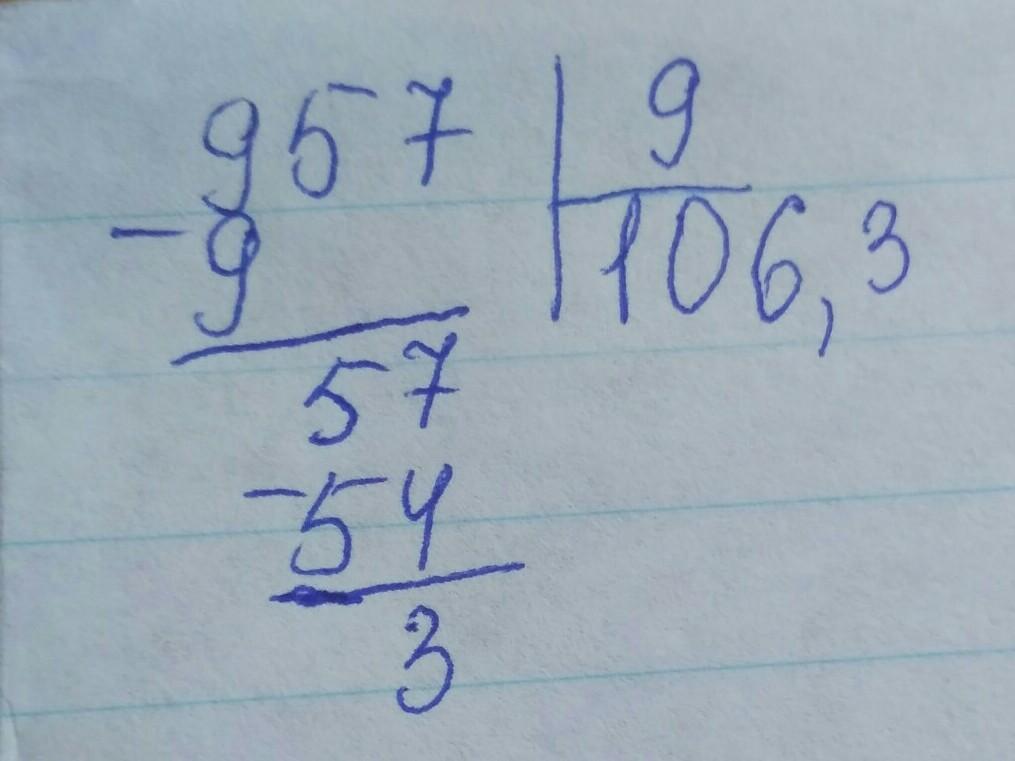 957 | 9
-9 | 106,3
57
-54
3